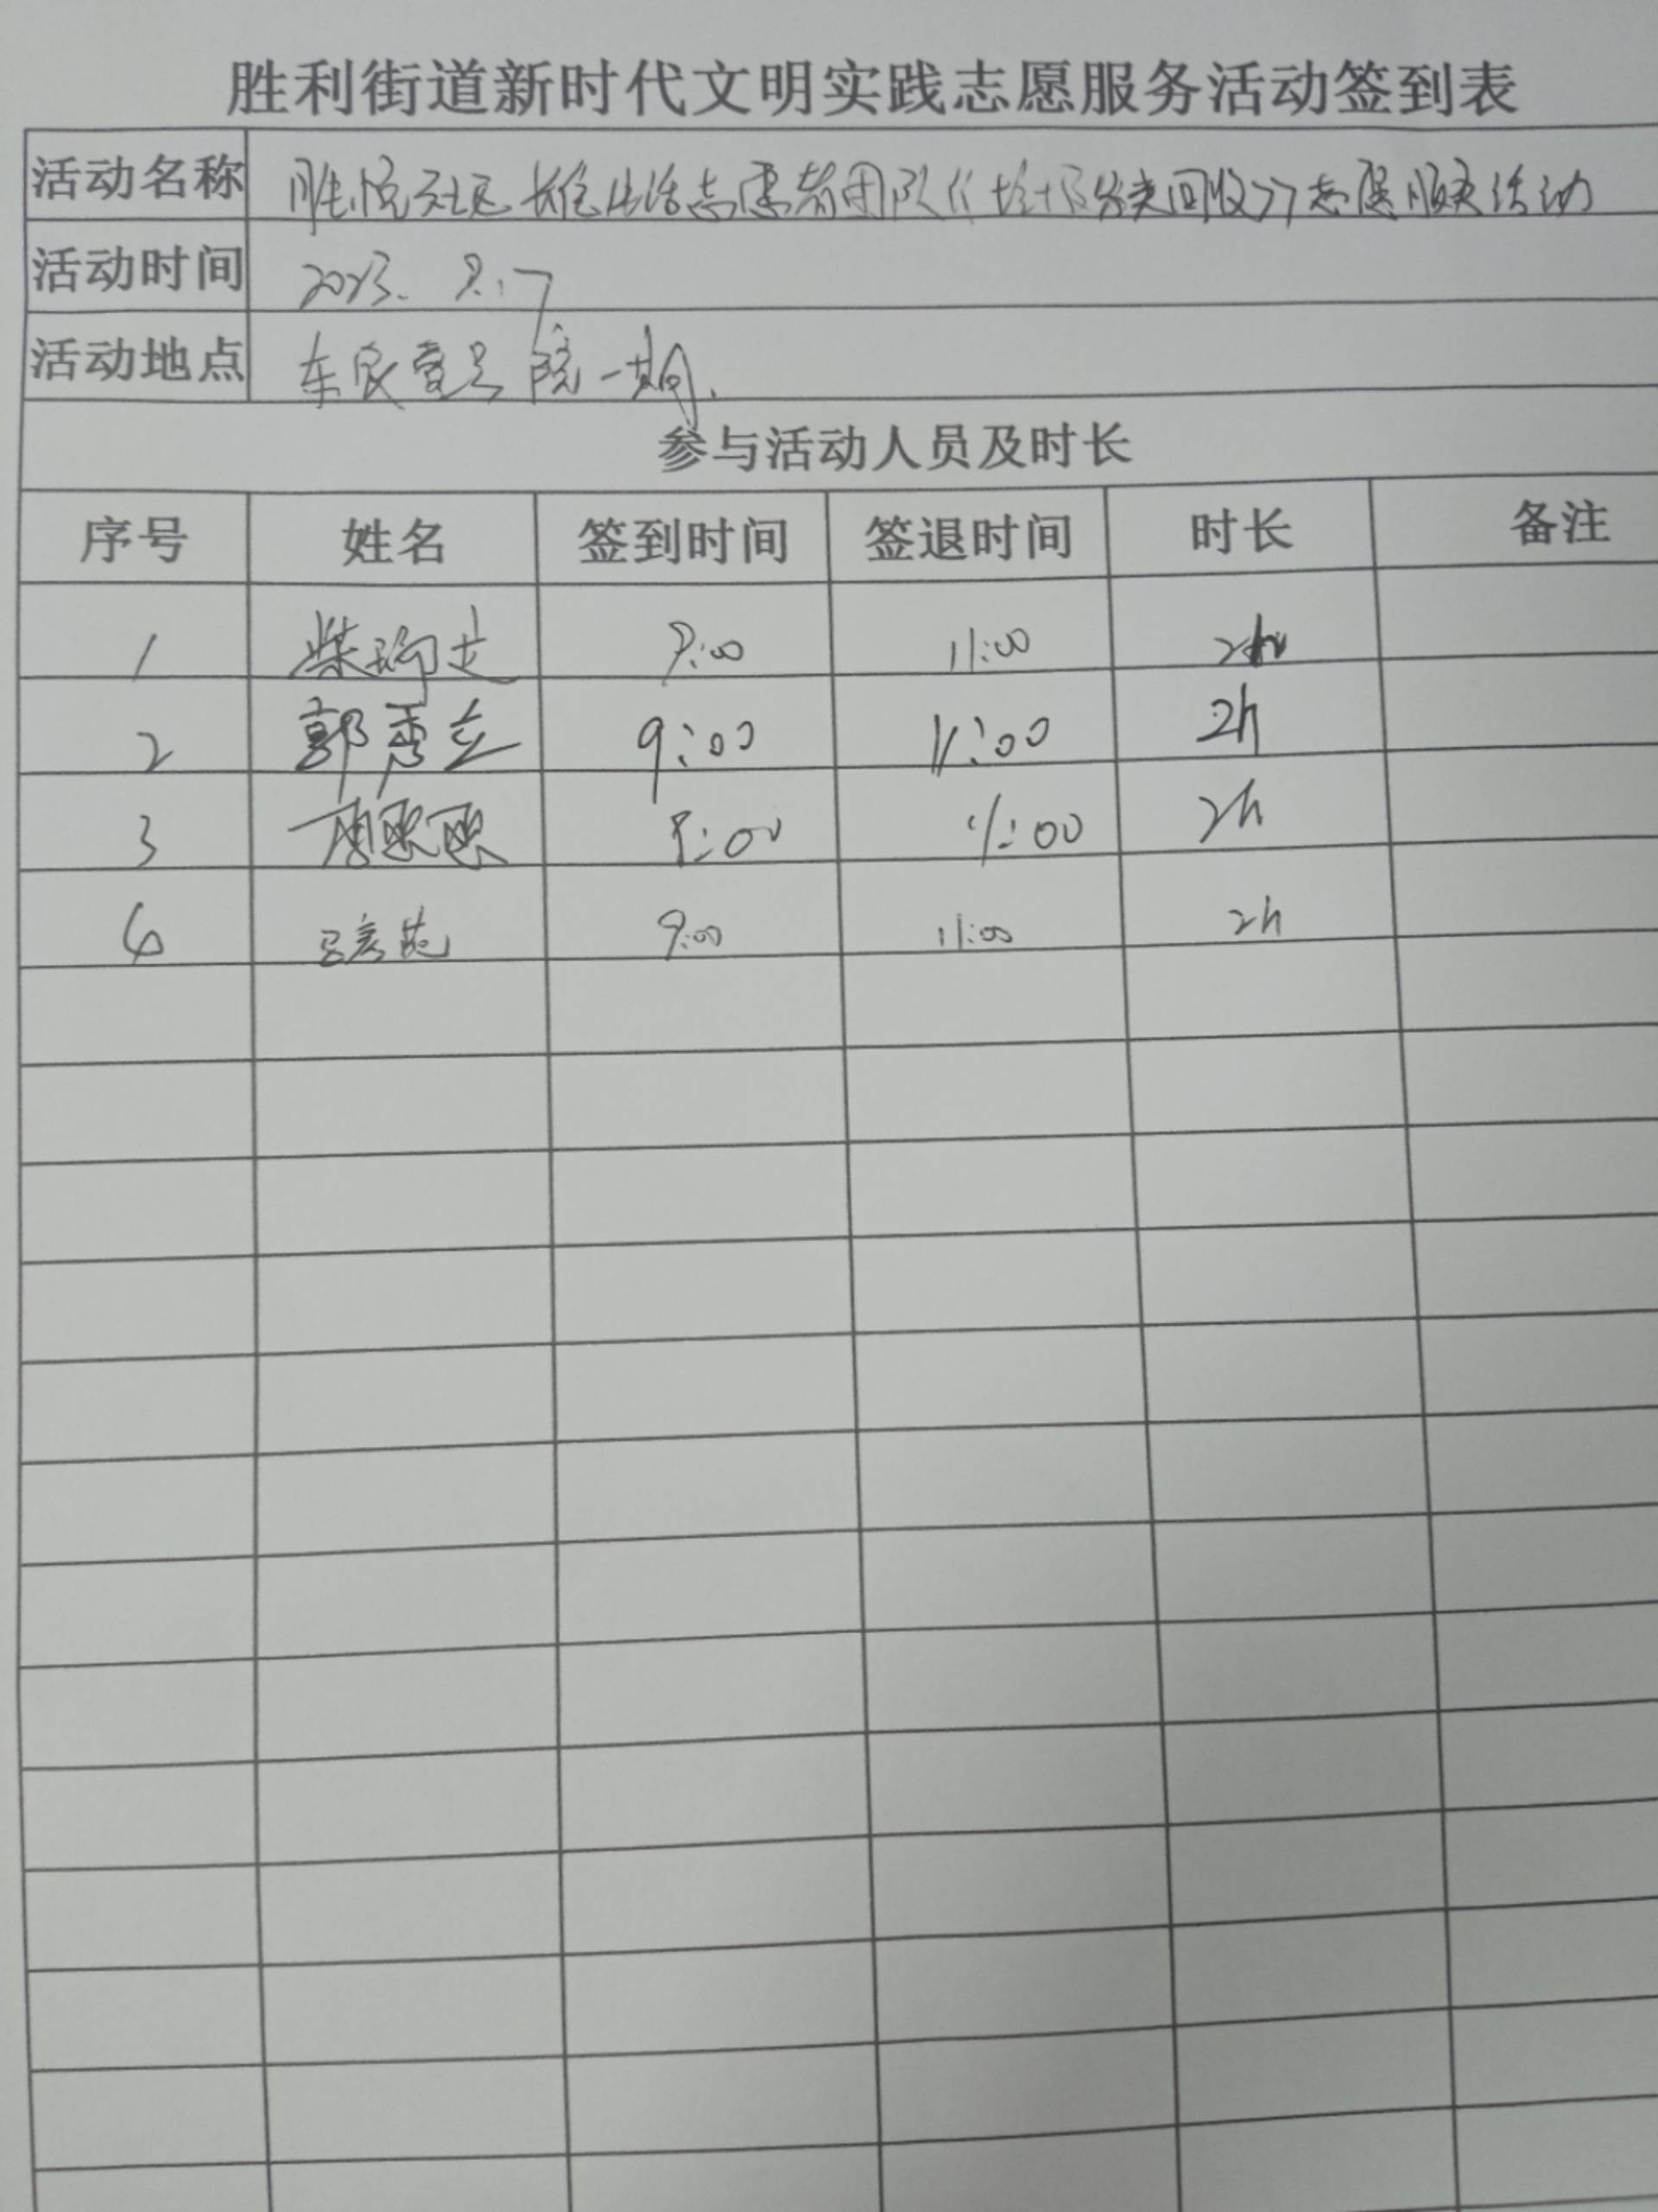 胜利街道新时代文明实践志愿服务活动签到表
活动名称 胜悦社区 生活志愿者团队《垃圾分类回收》志愿服务活动
活动时间 2023. 9.17
活动地点 东 院一期.
参与活动人员及时长
序号 姓名 签到时间 签退时间 时长 备注
1 柴 9:00 11:00 2h
2 郭秀兰 9:00 11:00 2h
3 9:00 11:00 2h
4 9:00 11:00 2h